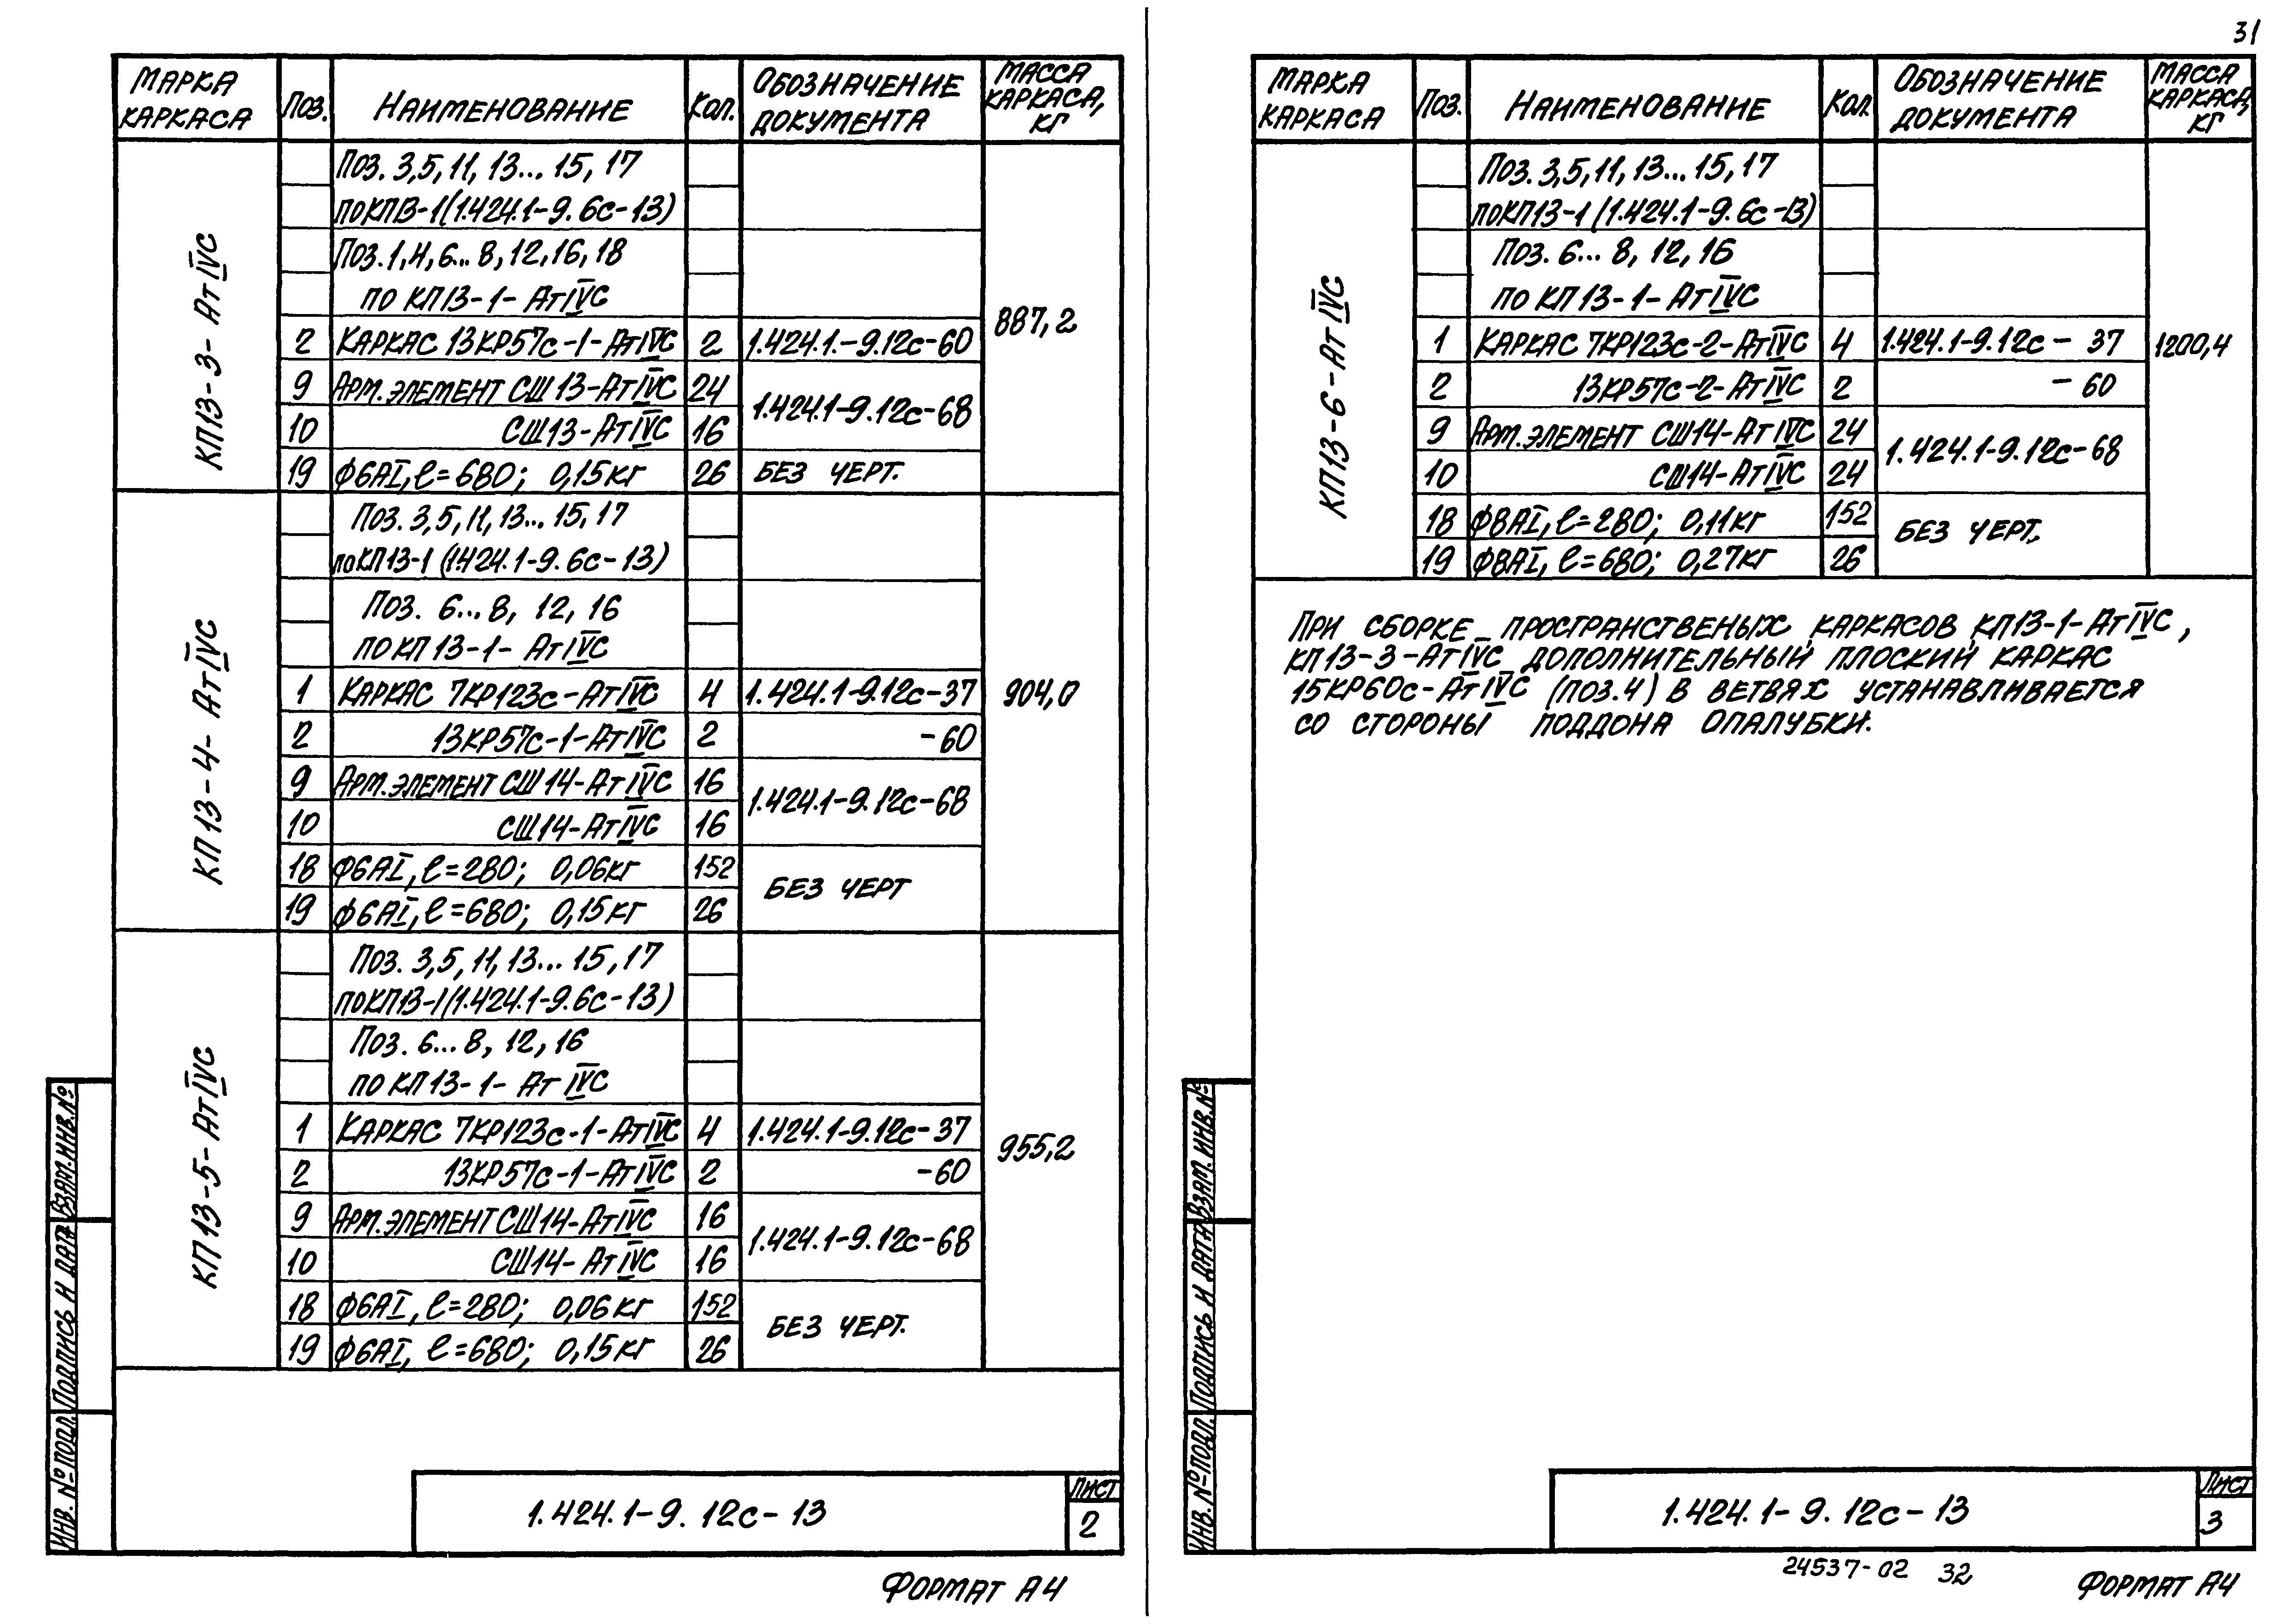 31
МАРКА КАРКАСА | ПОЗ. | НАИМЕНОВАНИЕ | КОЛ. | ОБОЗНАЧЕНИЕ ДОКУМЕНТА | МАССА КАРКАСА, КГ
КП13-3-АтIVС
ПОЗ. 3,5,11,13...15,17
ПО КП13-1 (1.424.1-9.6с-13)
ПОЗ. 1,4,6...8,12,16,18
ПО КП13-1-АтIVС
2 | КАРКАС 13КР57с-1-АтIVС | 2 | 1.424.1.-9.12с-60
887,2
9 | АРМ. ЭЛЕМЕНТ СШ13-АтIVС | 24 | 1.424.1-9.12с-68
10 | СШ13-АтIVС | 16
19 | Ф6АI, ℓ=680; 0,15кг | 26 | БЕЗ ЧЕРТ.
КП13-4-АтIVС
ПОЗ. 3,5,11,13...15,17
ПО КП13-1 (1.424.1-9.6с-13)
ПОЗ. 6...8, 12, 16
ПО КП13-1-АтIVС
1 | КАРКАС 7КР123с-АтIVС | 4 | 1.424.1-9.12с-37
904,0
2 | 13КР57с-1-АтIVС | 2 | -60
9 | АРМ. ЭЛЕМЕНТ СШ14-АтIVС | 16 | 1.424.1-9.12с-68
10 | СШ14-АтIVС | 16
18 | Ф6АI, ℓ=280; 0,06кг | 152 | БЕЗ ЧЕРТ
19 | Ф6АI, ℓ=680; 0,15кг | 26
КП13-5-АтIVС
ПОЗ. 3,5,11,13...15,17
ПО КП13-1 (1.424.1-9.6с-13)
ПОЗ. 6...8, 12, 16
ПО КП13-1-АтIVС
1 | КАРКАС 7КР123с-1-АтIVС | 4 | 1.424.1-9.12с-37
955,2
2 | 13КР57с-1-АтIVС | 2 | -60
9 | АРМ. ЭЛЕМЕНТ СШ14-АтIVС | 16 | 1.424.1-9.12с-68
10 | СШ14-АтIVС | 16
18 | Ф6АI, ℓ=280; 0,06кг | 152 | БЕЗ ЧЕРТ.
19 | Ф6АI, ℓ=680; 0,15кг | 26
ИНВ. № ПОДЛ. | ПОДПИСЬ И ДАТА | ВЗАМ. ИНВ. №
1.424.1-9.12с-13
ЛИСТ
2
ФОРМАТ А4
МАРКА КАРКАСА | ПОЗ. | НАИМЕНОВАНИЕ | КОЛ. | ОБОЗНАЧЕНИЕ ДОКУМЕНТА | МАССА КАРКАСА, КГ
КП13-6-АтIVС
ПОЗ. 3,5,11,13...15,17
ПО КП13-1 (1.424.1-9.6с-13)
ПОЗ. 6...8, 12, 16
ПО КП13-1-АтIVС
1 | КАРКАС 7КР123с-2-АтIVС | 4 | 1.424.1-9.12с-37
1200,4
2 | 13КР57с-2-АтIVС | 2 | -60
9 | АРМ. ЭЛЕМЕНТ СШ14-АтIVС | 24 | 1.424.1-9.12с-68
10 | СШ14-АтIVС | 24
18 | Ф8АI, ℓ=280; 0,11кг | 152 | БЕЗ ЧЕРТ.
19 | Ф8АI, ℓ=680; 0,27кг | 26
ПРИ СБОРКЕ ПРОСТРАНСТВЕНЫХ КАРКАСОВ КП13-1-АтIVС,
КП13-3-АтIVС ДОПОЛНИТЕЛЬНЫЙ ПЛОСКИЙ КАРКАС
15КР60с-АтIVС (ПОЗ.4) В ВЕТВЯХ УСТАНАВЛИВАЕТСЯ
СО СТОРОНЫ ПОДДОНА ОПАЛУБКИ.
ИНВ. № ПОДЛ. | ПОДПИСЬ И ДАТА | ВЗАМ. ИНВ. №
1.424.1-9.12с-13
ЛИСТ
3
24537-02 32
ФОРМАТ А4